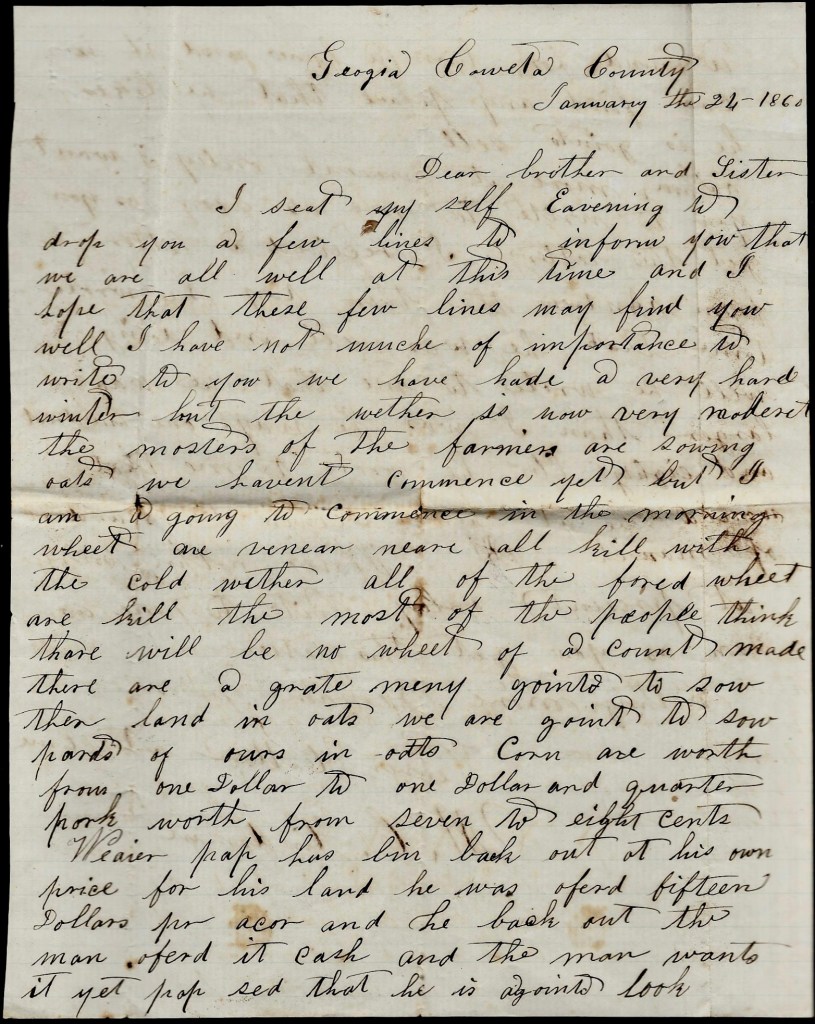 Geogia Coweta County
January the 24-1860
Dear brother and Sister
I seat my self Eavening to
drop you a few lines to inform yow that
we are all well at this time and I
hope that these few lines may find yow
well I have not muche of importance to
write to yow we have hade a very hard
winter but the wether is now very moderet
the mosters of the farmers are sowing
oats we havent commence yet but I
am a going to commence in the morning
wheet are venear neare all kill with
the cold wether all of the fored wheet
are kill the most of the people think
thare will be no wheet of a count made
there are a grate meny goint to sow
ther land in oats we are goint to sow
pards of ours in oats Corn are worth
from one Dollar to one Dollar and quarter
pork worth from seven to eight cents
pap has bin back out at his own
price for his land he was oferd fifteen
Dollars pr acor and he back out the
man oferd it cash and the man wants
it yet pap sed that he is agoint look